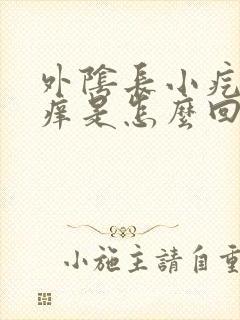 外陰長小疙
痒是怎麼回
小施主請自重